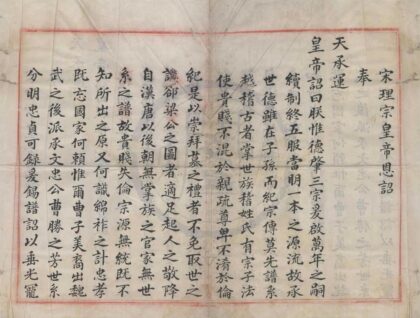 宋理宗皇帝恩詔
奉
天承運
皇帝詔曰朕惟德肇三宗爰啟萬年之嗣
續制終五服當明一本之源流故承
世德雖在子孫而紀宗傳莫先譜系
越稽古者掌世族稽姓氏有宗子法
使貴賤不混於親疏尊卑不淆於倫
紀是以崇拜墓之禮者不免取世之
譏卻梁公之圖者適足起人之敬降
自漢唐以後朝無掌族之官家無世
系之譜故貴賤失倫宗源無統既不
知所出之原又何識綿祚之計忠孝
既忘國家何賴惟爾曹子美裔出魏
武之後派承文忠公曹勝之芳世系
分明忠貞可錄爰錫譜詔以垂光寵